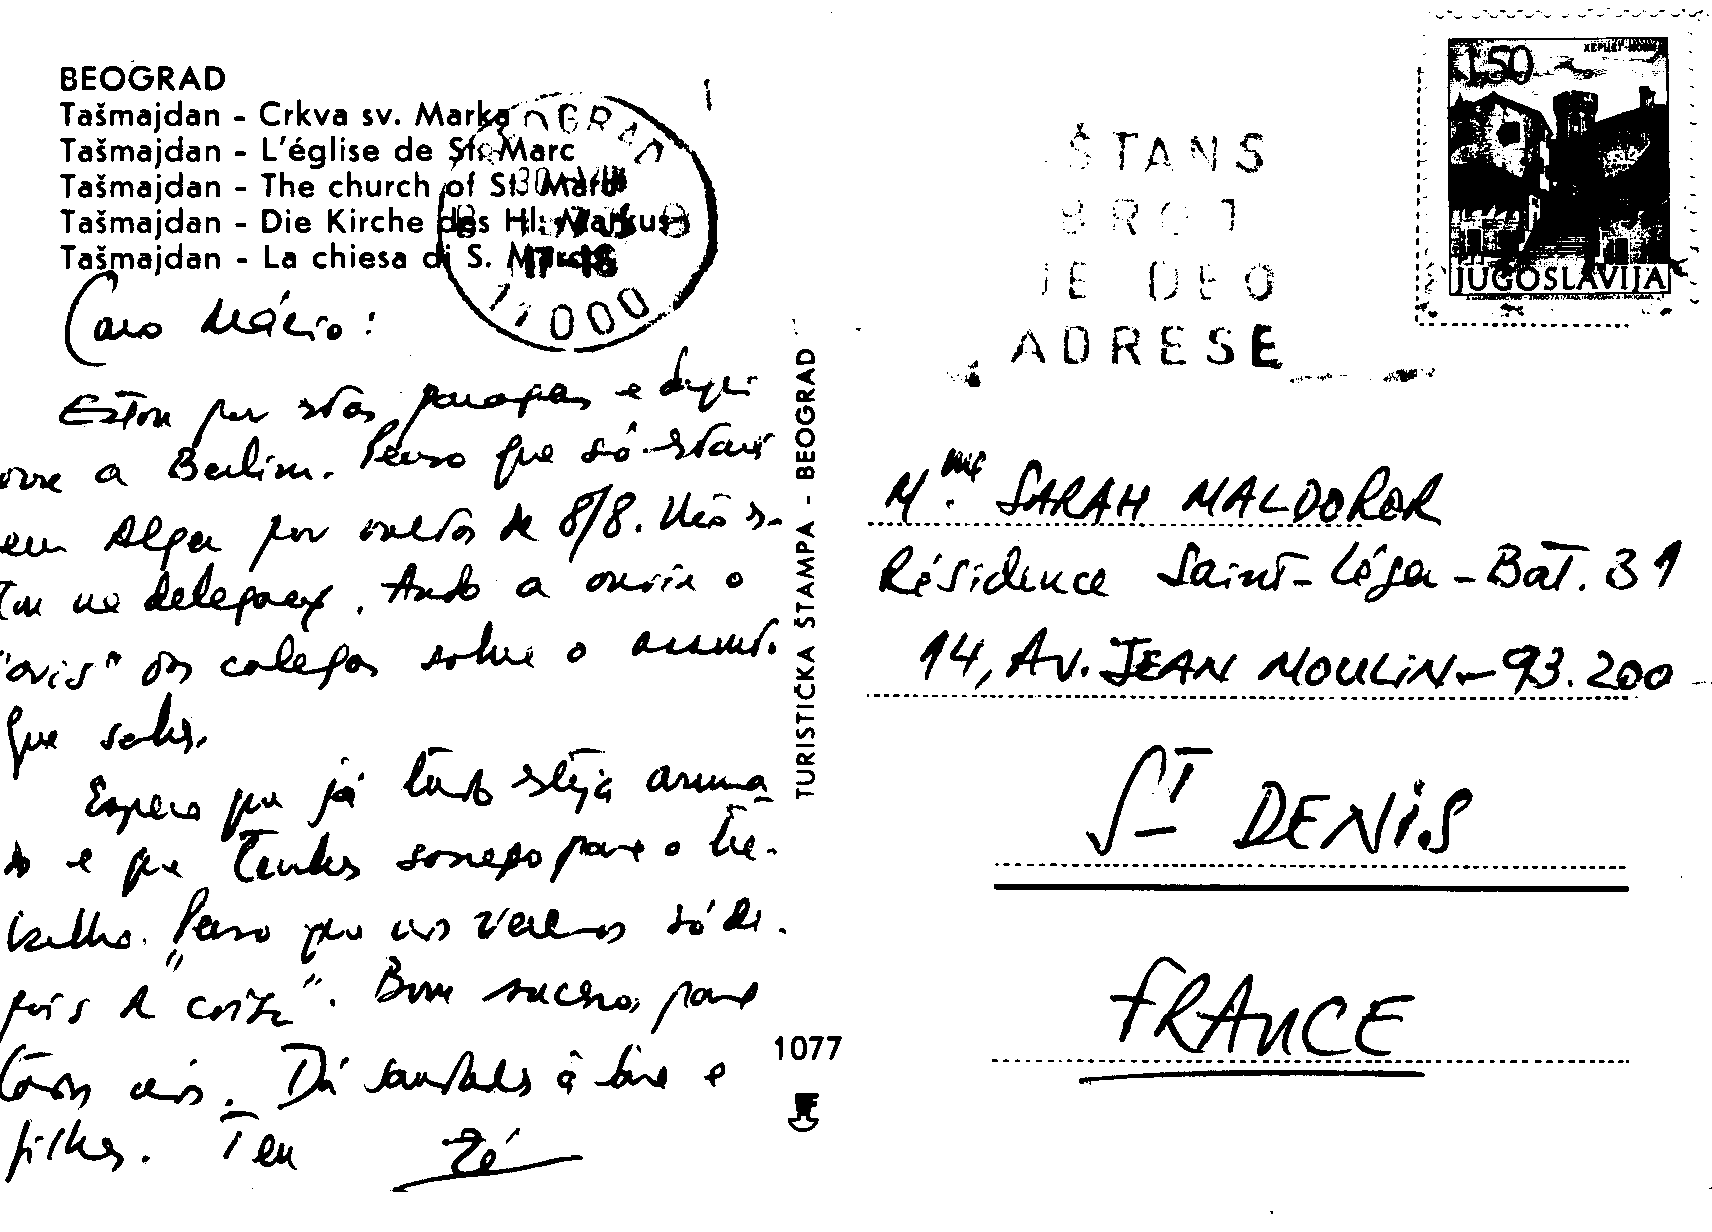 BEOGRAD
Tašmajdan - Crkva sv. Marka
Tašmajdan - L'église de St. Marc
Tašmajdan - The church of St. Mark
Tašmajdan - Die Kirche des Hl. Markus
Tašmajdan - La chiesa di S. Marco
BEOGRAD
17-18
11000
ŠTANSKI
BROJ
JE DEO
ADRESE
1.50
JUGOSLAVIJA
Caro Mário:
Estou por estas paragens e daqui
a Berlim. Penso que só estarei
em Alger por volta de 8/8. Não es-
tou na delegação. Ando a ouvir o
"avis" dos colegas sobre o assunto
que sabes.
Espero que já tudo esteja arruma-
do e que tenhas sossego para o tra-
balho. Penso que nos veremos só de-
pois de "cette". Bom sucesso para
todos nós. Dá saudades à Sara e
filhas. Teu Zé
TURISTIČKA ŠTAMPA - BEOGRAD
1077
Mme. SARAH MALDOROR
Résidence Saint-Léger - Bat. 31
14, Av. JEAN MOULIN - 93.200
ST DENIS
FRANCE